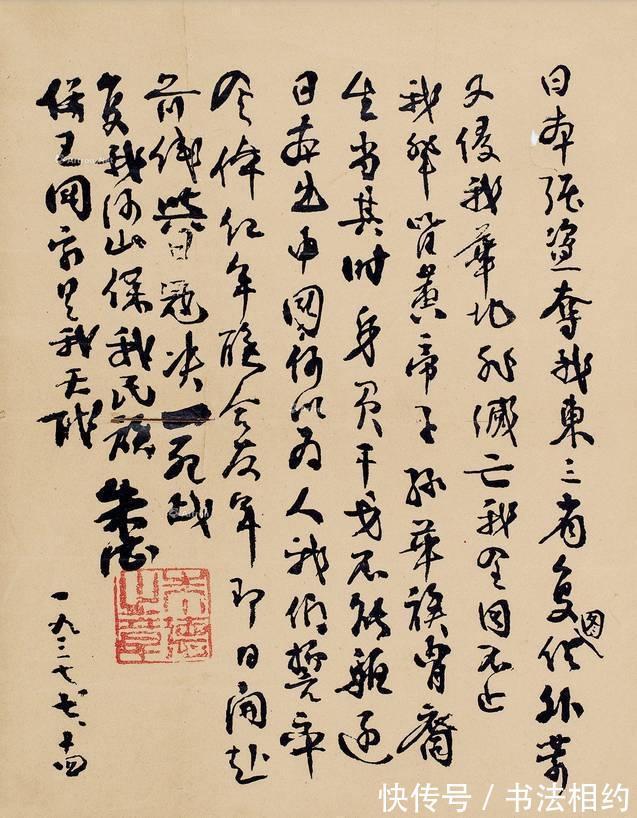 日本强盗夺我東三省复图外蒙
又侵我華北非滅亡我全国不止
我辈皆黄帝子孫華族胄裔
生当其时身負干戈不能驱逐
日本出中國何以为人我们誓率
全体红军联合友军即日開赴
前线與日寇决一死战
复我河山保我民族
衛我國家是我天职
朱德
朱德之章
一九三七、七、十四
快传号 / 书法相约